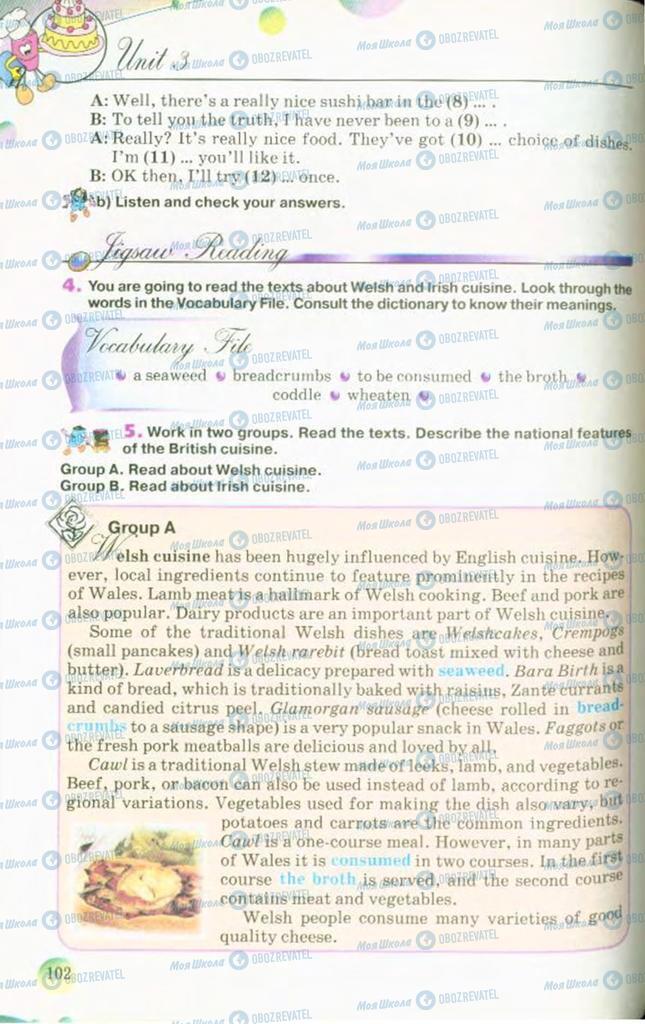 Unit 3
A: Well, there's a really nice sushi bar in the (8) ... .
B: To tell you the truth, I have never been to a (9) ... .
A: Really? It's really nice food. They've got (10) ... choice of dishes.
I'm (11) ... you'll like it.
B: OK then, I'll try (12) ... once.
b) Listen and check your answers.
Jigsaw Reading
4. You are going to read the texts about Welsh and Irish cuisine. Look through the
words in the Vocabulary File. Consult the dictionary to know their meanings.
Vocabulary File
a seaweed breadcrumbs to be consumed the broth
coddle wheaten
5. Work in two groups. Read the texts. Describe the national features
of the British cuisine.
Group A. Read about Welsh cuisine.
Group B. Read about Irish cuisine.
Group A
Welsh cuisine has been hugely influenced by English cuisine. How-
ever, local ingredients continue to feature prominently in the recipes
of Wales. Lamb meat is a hallmark of Welsh cooking. Beef and pork are
also popular. Dairy products are an important part of Welsh cuisine.
Some of the traditional Welsh dishes are Welshcakes, Crempogs
(small pancakes) and Welsh rarebit (bread toast mixed with cheese and
butter). Laverbread is a delicacy prepared with seaweed. Bara Birth is a
kind of bread, which is traditionally baked with raisins, Zante currants
and candied citrus peel. Glamorgan sausage (cheese rolled in bread-
crumbs to a sausage shape) is a very popular snack in Wales. Faggots or
the fresh pork meatballs are delicious and loved by all.
Cawl is a traditional Welsh stew made of leeks, lamb, and vegetables.
Beef, pork, or bacon can also be used instead of lamb, according to re-
gional variations. Vegetables used for making the dish also vary, but
potatoes and carrots are the common ingredients.
Cawl is a one-course meal. However, in many parts
of Wales it is consumed in two courses. In the first
course the broth is served, and the second course
contains meat and vegetables.
Welsh people consume many varieties of good
quality cheese.
102
Моя Школа OBOZREVATEL